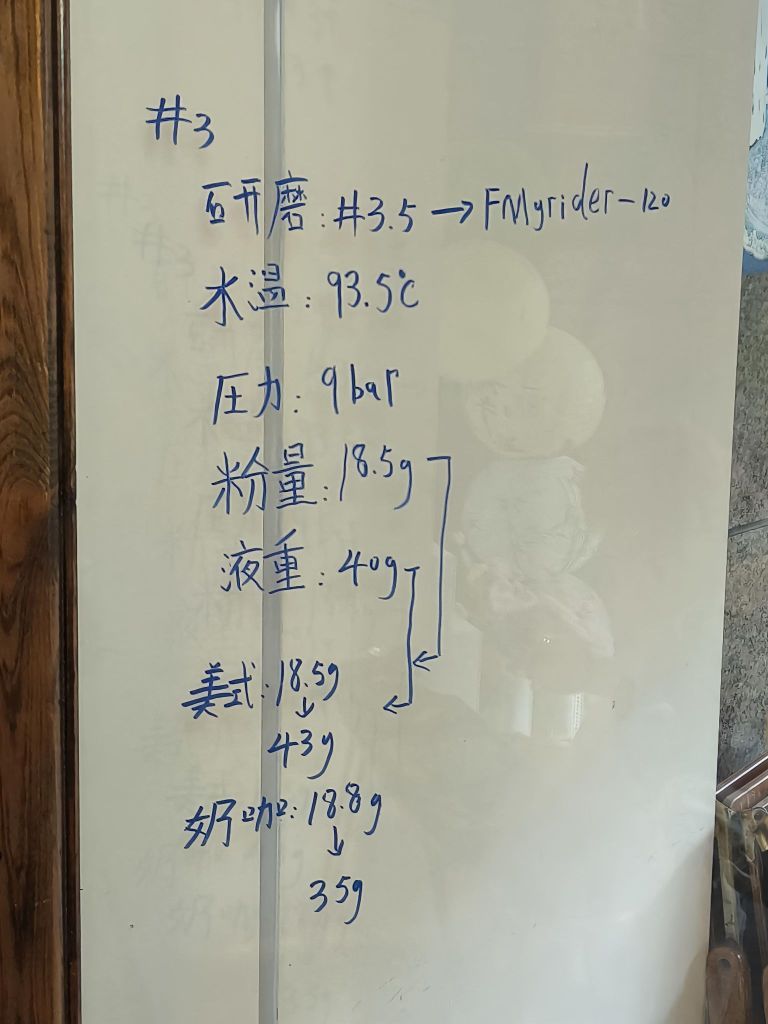 #3
研磨:#3.5→FMgrider-120
水温:93.5℃
压力:9bar
粉量:18.5g
液重:40g
美式:18.5g
↓
43g
奶咖:18.8g
↓
35g